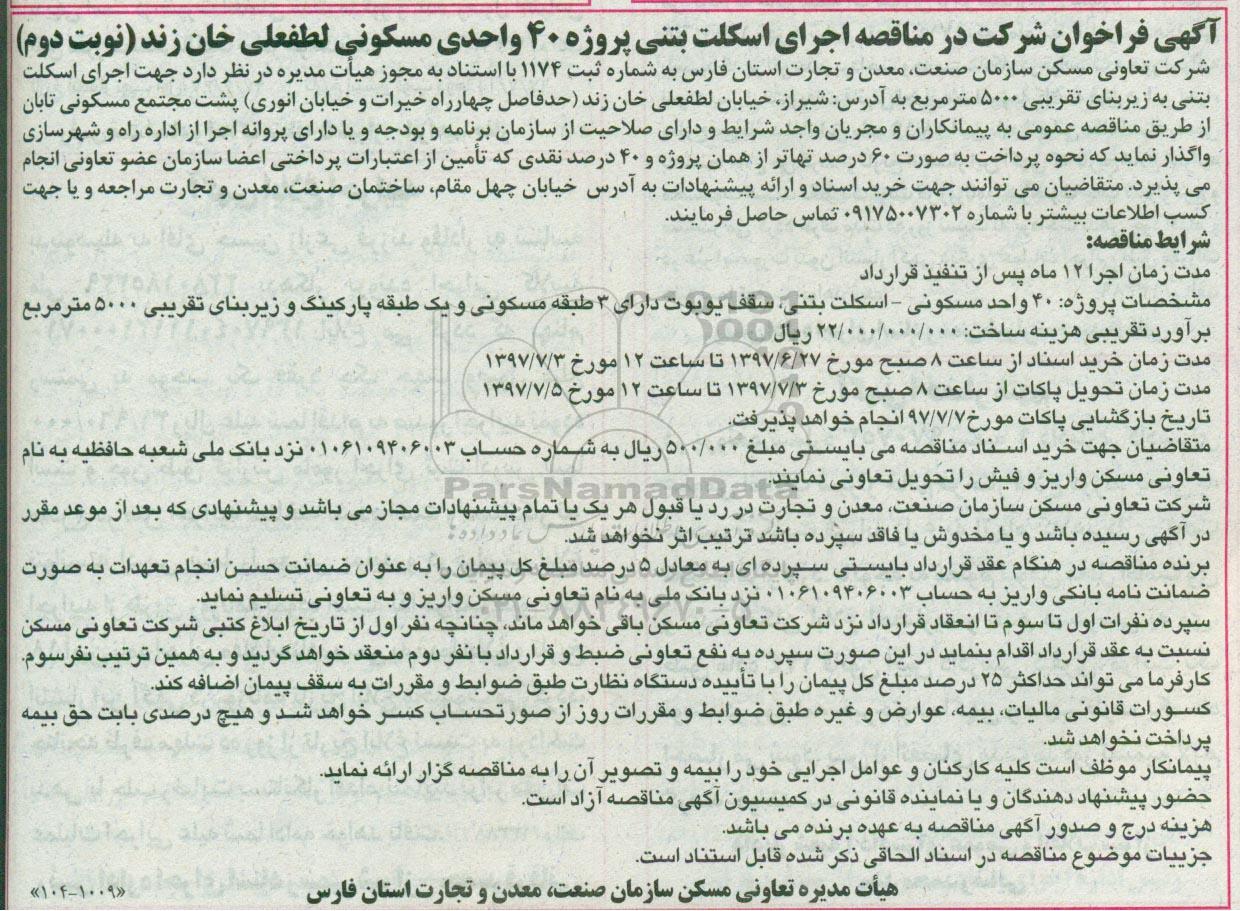 آگهی فراخوان شرکت در مناقصه اجرای اسکلت بتنی پروژه ۴۰ واحدی مسکونی لطفعلی خان زند (نوبت دوم)
شرکت تعاونی مسکن سازمان صنعت، معدن و تجارت استان فارس به شماره ثبت ۱۱۷۴ با استناد به مجوز هیأت مدیره در نظر دارد جهت اجرای اسکلت
بتنی به زیربنای تقریبی ۵۰۰۰ مترمربع به آدرس: شیراز، خیابان لطفعلی خان زند (حدفاصل چهارراه خیرات و خیابان انوری) پشت مجتمع مسکونی تابان
از طریق مناقصه عمومی به پیمانکاران و مجریان واجد شرایط و دارای صلاحیت از سازمان برنامه و بودجه و یا دارای پروانه اجرا از اداره راه و شهرسازی
واگذار نماید که نحوه پرداخت به صورت ۶۰ درصد تهاتر از همان پروژه و ۴۰ درصد نقدی که تأمین از اعتبارات پرداختی اعضا سازمان عضو تعاونی انجام
می پذیرد. متقاضیان می توانند جهت خرید اسناد و ارائه پیشنهادات به آدرس خیابان چهل مقام، ساختمان صنعت، معدن و تجارت مراجعه و یا جهت
کسب اطلاعات بیشتر با شماره ۰۹۱۷۵۰۰۷۳۰۲ تماس حاصل فرمایند.
شرایط مناقصه:
مدت زمان اجرا ۱۲ ماه پس از تنفیذ قرارداد
مشخصات پروژه: ۴۰ واحد مسکونی – اسکلت بتنی، سقف یوبوت دارای ۳ طبقه مسکونی و یک طبقه پارکینگ و زیربنای تقریبی ۵۰۰۰ مترمربع
برآورد تقریبی هزینه ساخت: ۲۲/۰۰۰/۰۰۰/۰۰۰ ریال
مدت زمان خرید اسناد از ساعت ۸ صبح مورخ ۱۳۹۷/۶/۲۷ تا ساعت ۱۲ مورخ ۱۳۹۷/۷/۳
مدت زمان تحویل پاکات از ساعت ۸ صبح مورخ ۱۳۹۷/۷/۳ تا ساعت ۱۲ مورخ ۱۳۹۷/۷/۵
تاریخ بازگشایی پاکات مورخ ۹۷/۷/۷ انجام خواهد پذیرفت.
متقاضیان جهت خرید اسناد مناقصه می بایستی مبلغ ۵۰۰/۰۰۰ ریال به شماره حساب ۰۱۰۶۱۰۹۴۰۶۰۰۳ نزد بانک ملی شعبه حافظیه به نام
تعاونی مسکن واریز و فیش را تحویل تعاونی نمایند.
ParsNamadData
شرکت تعاونی مسکن سازمان صنعت، معدن و تجارت در رد یا قبول هر یک یا تمام پیشنهادات مجاز می باشد و پیشنهادی که بعد از موعد مقرر
در آگهی رسیده باشد و یا مخدوش یا فاقد سپرده باشد ترتیب اثر نخواهد شد.
برنده مناقصه در هنگام عقد قرارداد بایستی سپرده ای به معادل ۵ درصد مبلغ کل پیمان را به عنوان ضمانت حسن انجام تعهدات به صورت
ضمانت نامه بانکی واریز به حساب ۰۱۰۶۱۰۹۴۰۶۰۰۳ نزد بانک ملی به نام تعاونی مسکن واریز و به تعاونی تسلیم نماید.
سپرده نفرات اول تا سوم تا انعقاد قرارداد نزد شرکت تعاونی مسکن باقی خواهد ماند، چنانچه نفر اول از تاریخ ابلاغ کتبی شرکت تعاونی مسکن
نسبت به عقد قرارداد اقدام بنماید در این صورت سپرده به نفع تعاونی ضبط و قرارداد با نفر دوم منعقد خواهد گردید و به همین ترتیب نفر سوم.
کارفرما می تواند حداکثر ۲۵ درصد مبلغ کل پیمان را با تأییده دستگاه نظارت طبق ضوابط و مقررات به سقف پیمان اضافه کند.
کسورات قانونی مالیات، بیمه، عوارض و غیره طبق ضوابط و مقررات روز از صورتحساب کسر خواهد شد و هیچ درصدی بابت حق بیمه
پرداخت نخواهد شد.
پیمانکار موظف است کلیه کارکنان و عوامل اجرایی خود را بیمه و تصویر آن را به مناقصه گزار ارائه نماید.
حضور پیشنهاد دهندگان و یا نماینده قانونی در کمیسیون آگهی مناقصه آزاد است.
هزینه درج و صدور آگهی مناقصه به عهده برنده می باشد.
جزییات موضوع مناقصه در اسناد الحاقی ذکر شده قابل استناد است.
هیأت مدیره تعاونی مسکن سازمان صنعت، معدن و تجارت استان فارس
«۱۰۴-۱۰۰۹»